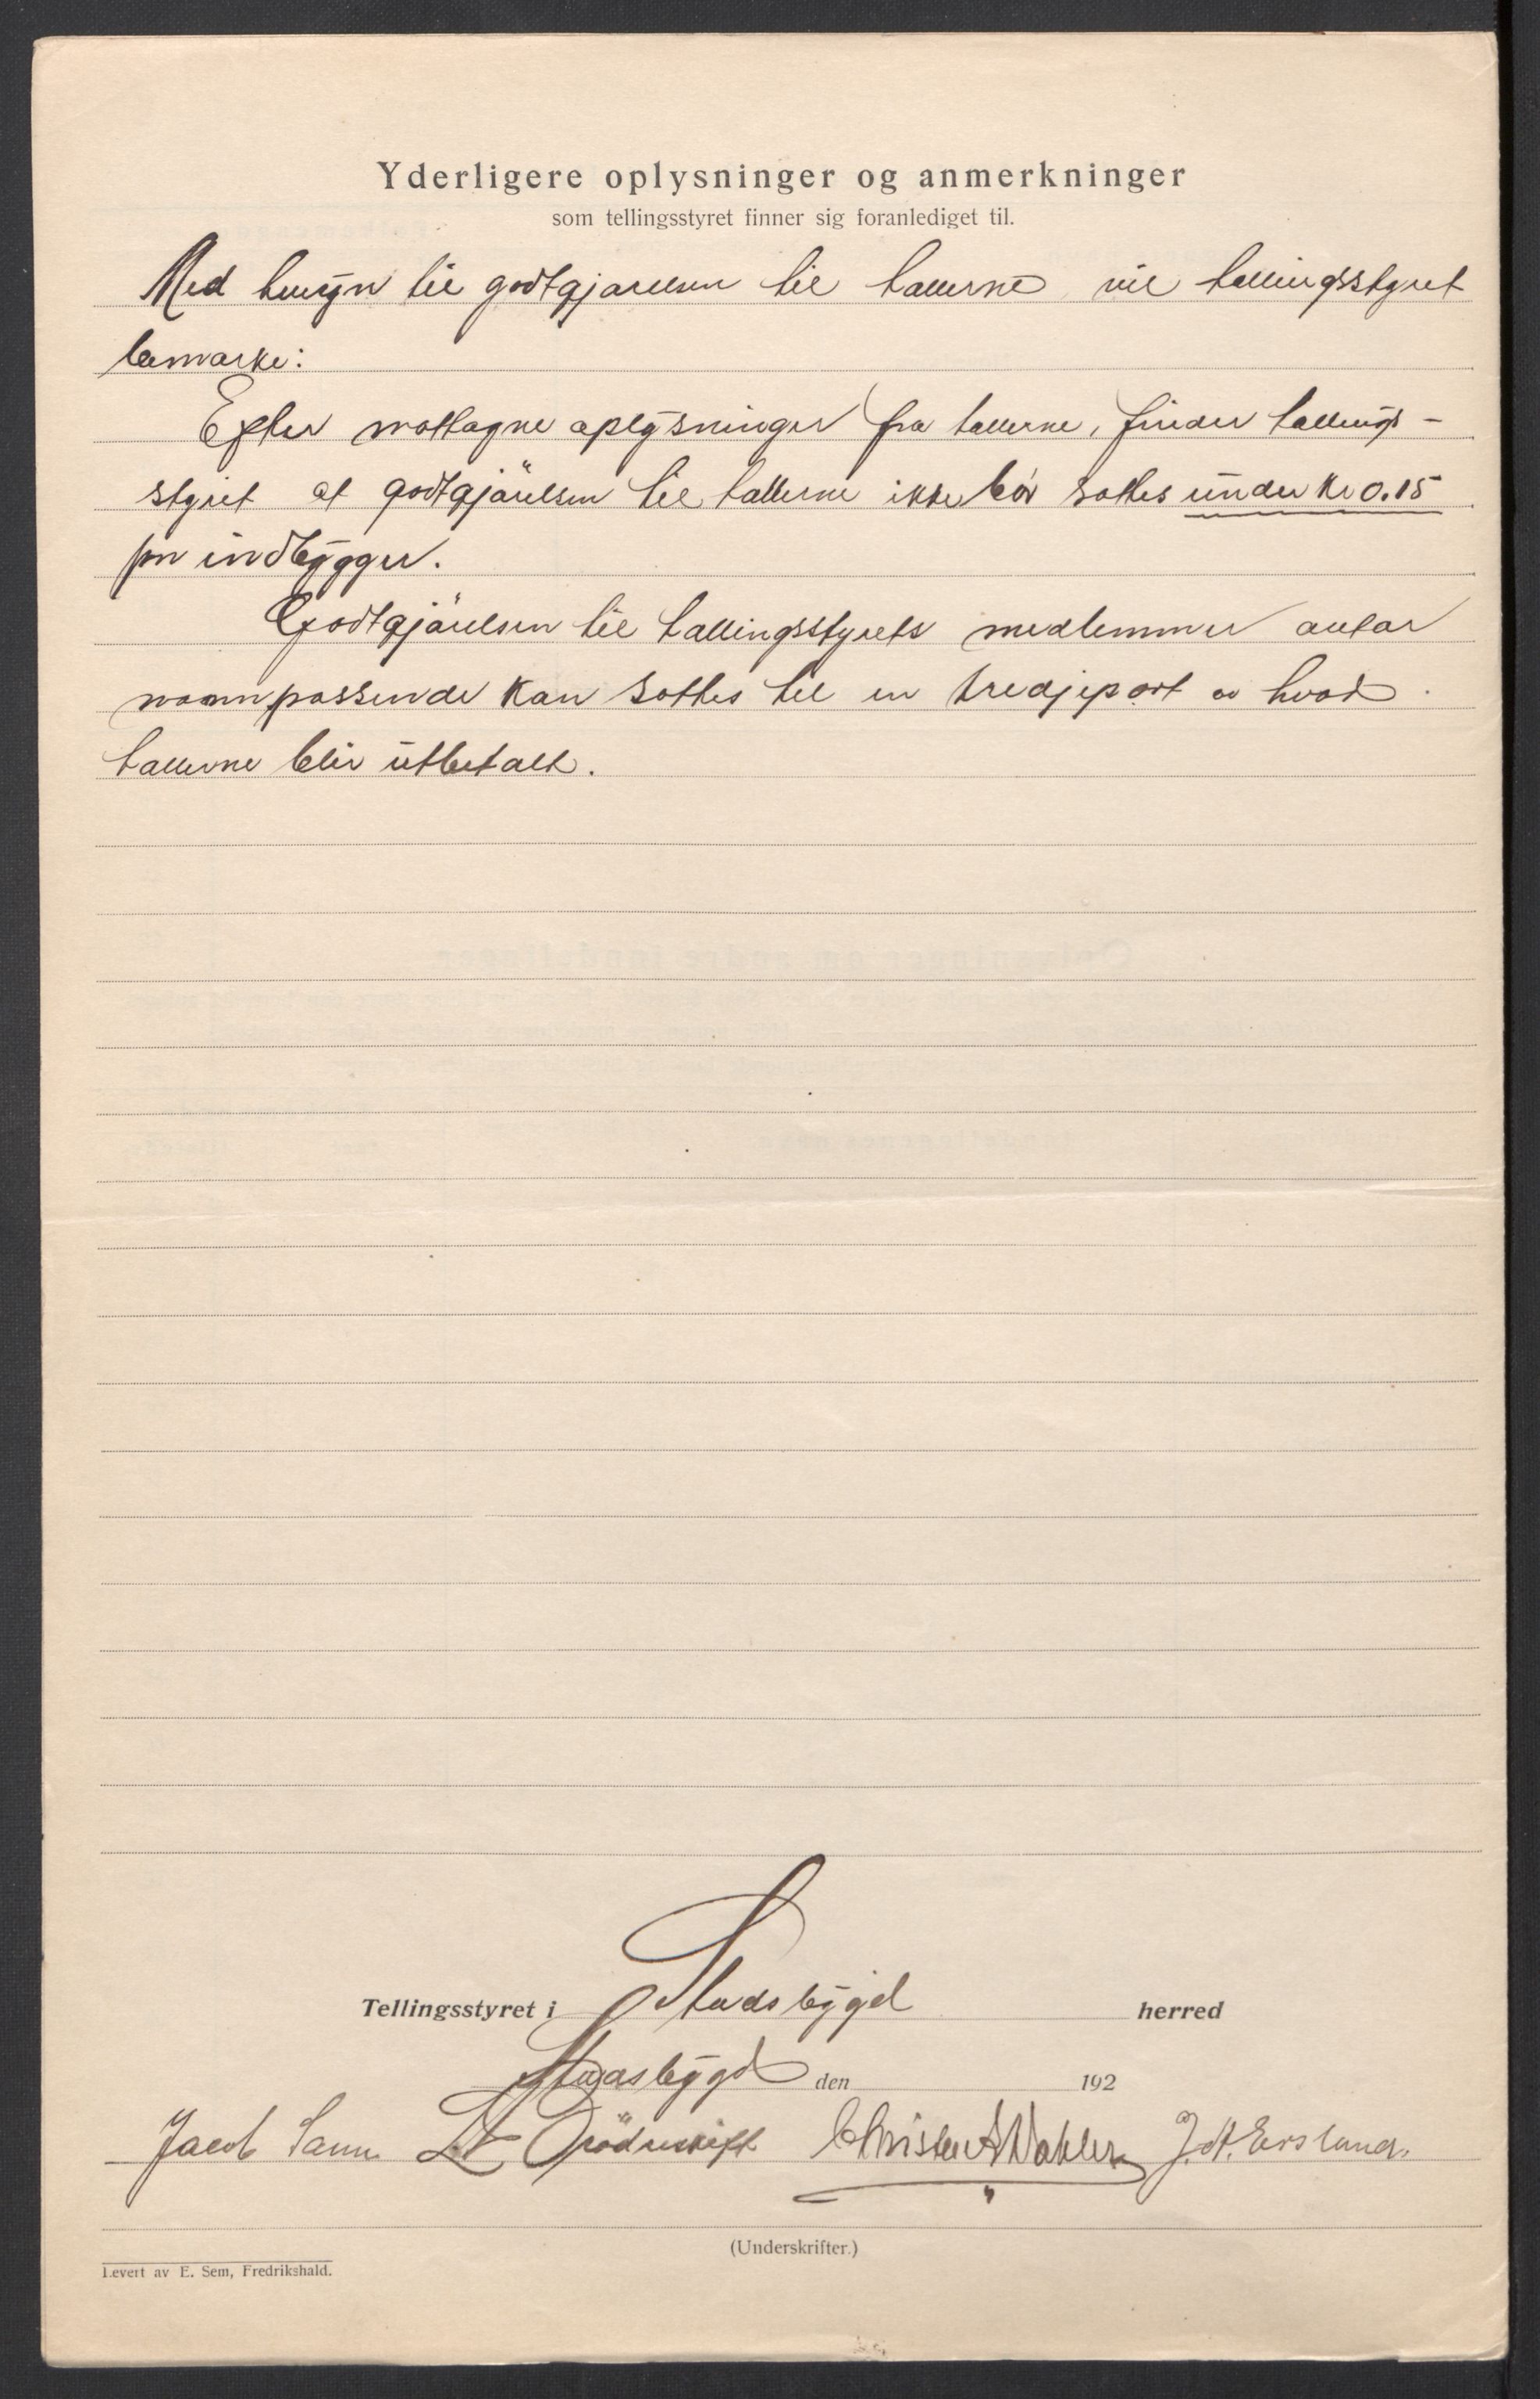 Yderligere oplysninger og anmerkninger
som tellingsstyret finner sig foranlediget til.
Med hensyn til godtgjørelsen til tællerne vil tællingsstyret
bemærke:
Efter mottagne oplysninger fra tællerne, finder tællings-
styret at godtgjørelsen til tællerne ikke bör sættes under kr 0.15
pr indbygger.
Godtgjörelsen til tællingsstyrets medlemmer antar
man passende kan sættes til en tredjepart av hvad
tællerne blir utbetalt.
Tellingsstyret i Stadsbygd herred
Stadsbygd den 192
Jacob Sann Christen A Wahlen J. A. Ersland.
(Underskrifter.)
Levert av E. Sem, Fredrikshald.